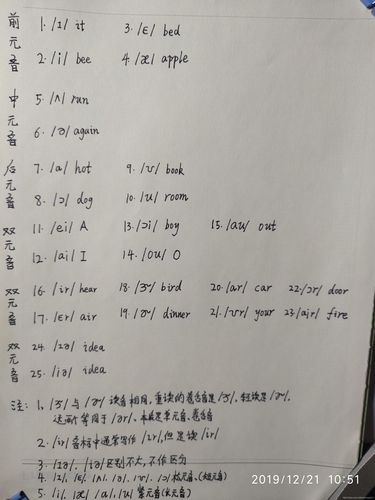 前元音 1. /ɪ/ it 3. /ɛ/ bed
2. /i/ bee 4. /æ/ apple
中元音 5. /ʌ/ run
6. /ə/ again
后元音 7. /ɑ/ hot 9. /ʊ/ book
8. /ɔ/ dog 10. /u/ room
双元音 11. /ei/ A 13. /ɔi/ boy 15. /aʊ/ out
12. /ai/ I 14. /oʊ/ O
双元音 16. /ir/ hear 18. /ɝ/ bird 20. /ɑr/ car 22. /ɔr/ door
17. /ɛr/ air 19. /ɚ/ dinner 21. /ʊr/ your 23. /air/ fire
双元音 24. /ɪə/ idea
25. /iə/ idea
注: 1. /ɝ/ 与 /ɚ/ 读音相同,重读的卷舌音是/ɝ/,轻读是/ɚ/,
这两个等同于/ər/、本质是单元音、卷舌音
2. /ir/音标中通常写作/ɪr/,但是读/ir/
3. /ɪə/、/iə/区别不大,不作区分
4. /ɪ/、/ɛ/ /ʌ/、/ə/、/ʊ/、/ɔ/松元音、(短元音)
5. /i/、/æ/ /ɑ/、/u/ 紧元音(长元音)
2019/12/21 10:51